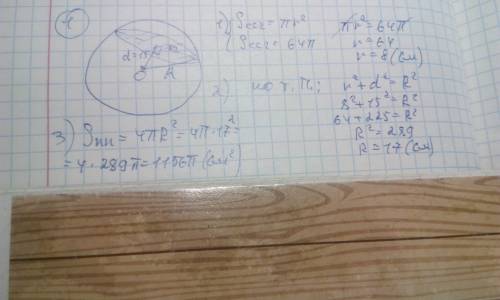 4
1) { Sсеч = πr²
{ Sсеч = 64π
πr² = 64π
r = 64
r = 8 (см)
d=15
O A
2) по т. П.:
r² + d² = R²
8² + 15² = R²
64 + 225 = R²
R² = 289
R = 17 (см)
3) Sпп = 4πR² = 4π·17² =
= 4·289π = 1156π (см²)